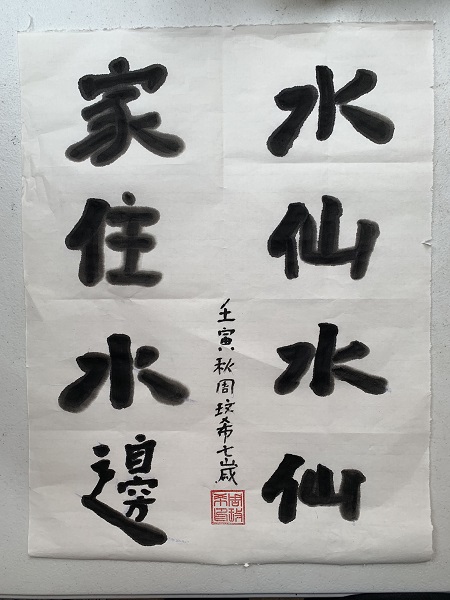 水仙水仙
家住水邊
壬寅秋周玟希七歲